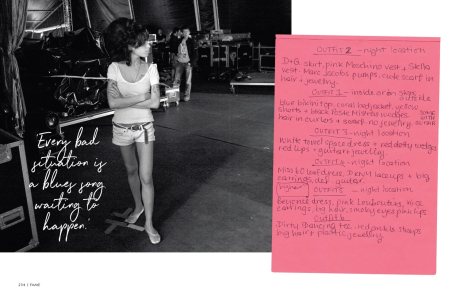 Every bad
situation is
a blues song
waiting to
happen.'
OUTFIT 2 - night location
D+G skirt, pink Moschino vest + Stella
vest. Marc Jacobs pumps, cute scarf in
hair + jewellery.
OUTFIT 1 - inside
blue bikini top, coral yellow
shorts + black wedges
hair in curlers + scarf no jewellery
OUTFIT 3 - night location
White towel dress + red dotty wedges
red lips + guitar + jewellery.
OUTFIT 4 - night location
dress, DKNY lace ups + big
earrings, def guitar
OUTFIT 5 - night location
Beyonce dress, pink Louboutins, nice
earrings, big hair, smokey eyes pink lips
OUTFIT 6
Dirty Dancing tee, red shorts
big hair + plastic jewellery
234 | FAME